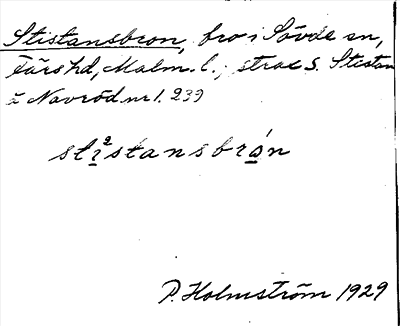 Stistansbron, bro i Sövde sn,
Färs hd, Malm. l.; strax S. Stistan
å Navröd nr 1. 239
sti²stansbrón
P. Holmström 1929